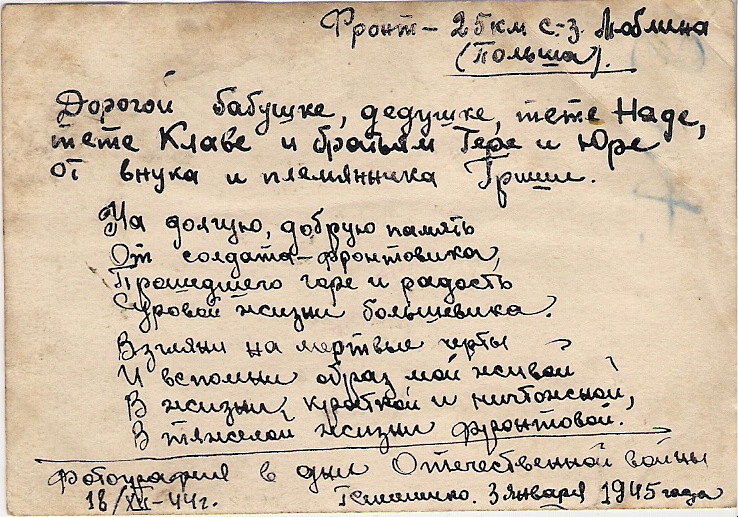 Фронт - 25 км с.-з. Люблина
(Польша).
Дорогой бабушке, дедушке, тете Наде,
тете Клаве и братьям Гере и Юре
от внука и племянника Гриши.
На долгую, добрую память
От солдата-фронтовика,
Прошедшего горе и радость
Суровой жизни большевика.
Взгляни на мертвые черты
И вспомни образ мой живой
В жизни, краткой и ничтожной,
В тяжелой жизни фронтовой.
Фотография в дни Отечественной войны
18/XII-44г. 3 января 1945 года